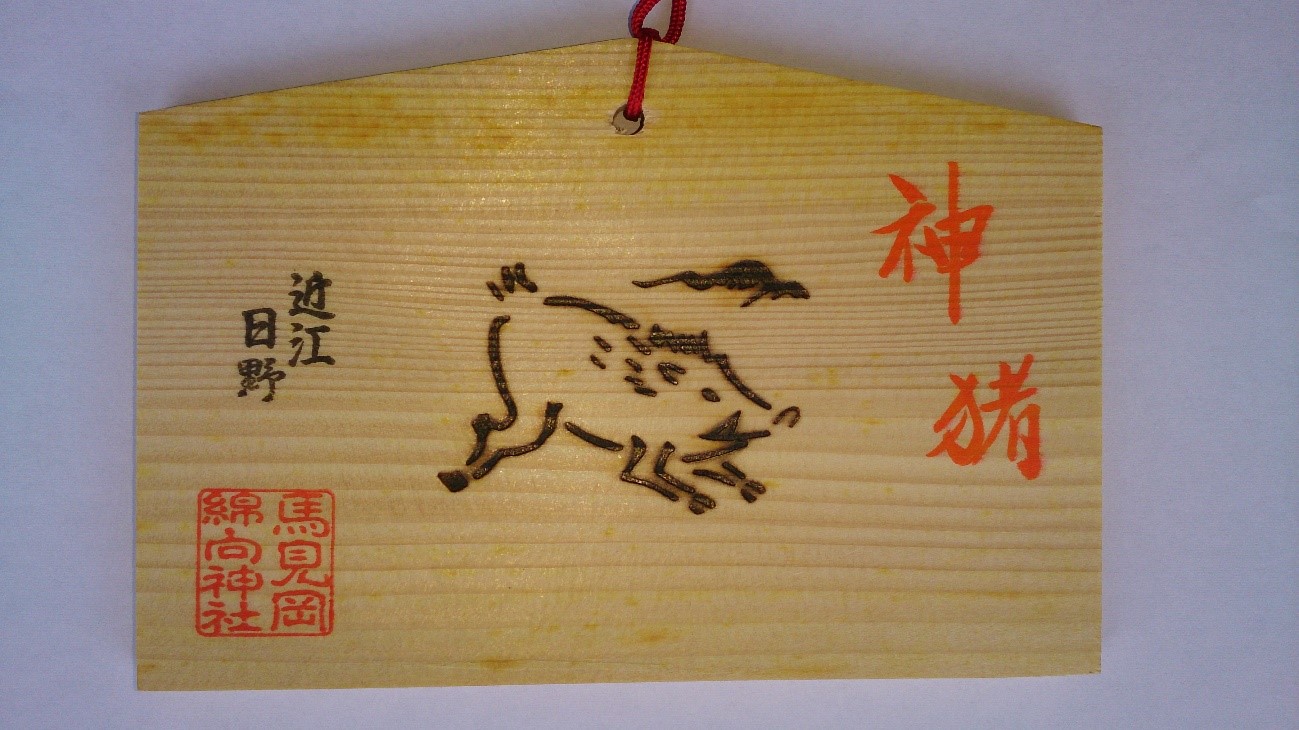 神猪
近江
日野
馬見岡
綿向神社